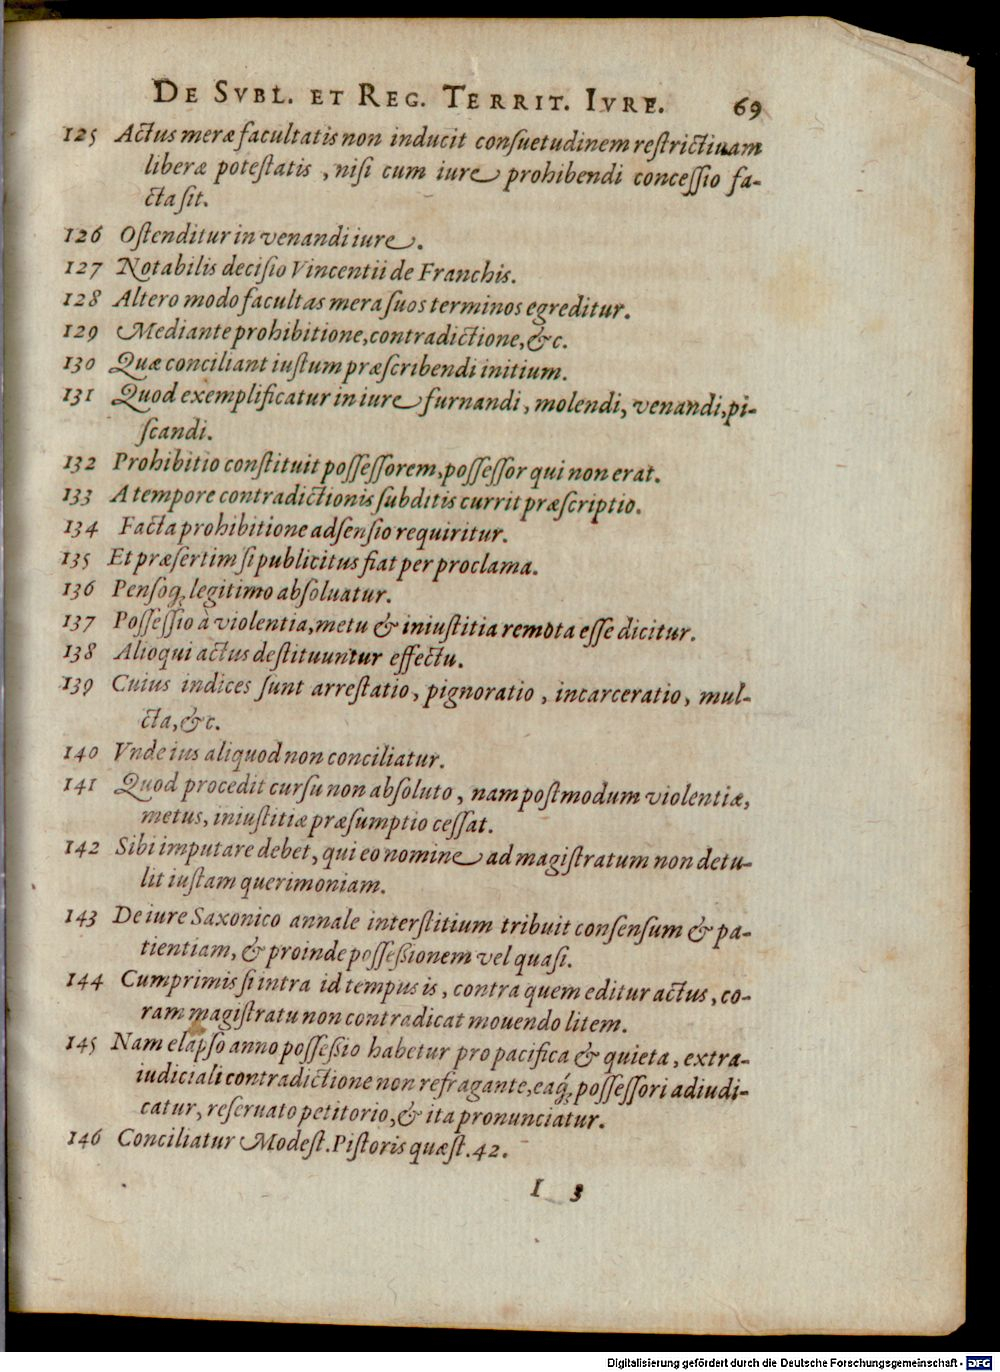 DE SVBL. ET REG. TERRIT. IVRE. 69
125 Actus meræ facultatis non inducit consuetudinem restrictiuam
liberæ potestatis, nisi cum iure prohibendi concessio fa-
cta sit.
126 Ostenditur in venandi iure.
127 Notabilis decisio Vincentii de Franchis.
128 Altero modo facultas mera suos terminos egreditur.
129 Mediante prohibitione, contradictione, &c.
130 Quæ conciliant iustum præscribendi initium.
131 Quod exemplificatur in iure furnandi, molendi, venandi, pi-
scandi.
132 Prohibitio constituit possessorem, possessor qui non erat.
133 A tempore contradictionis subditis currit præscriptio.
134 Facta prohibitione adsensio requiritur.
135 Et præsertim si publicitus fiat per proclama.
136 Pensoq́; legitimo absoluatur.
137 Possessio à violentia, metu & iniustitia remota esse dicitur.
138 Alioqui actus destituuntur effectu.
139 Cuius indices sunt arrestatio, pignoratio, incarceratio, mul-
cta, &c.
140 Vnde ius aliquod non conciliatur.
141 Quod procedit cursu non absoluto, nam postmodum violentiæ,
metus, iniustitiæ præsumptio cessat.
142 Sibi imputare debet, qui eo nomine ad magistratum non detu-
lit iustam querimoniam.
143 De iure Saxonico annale interstitium tribuit consensum & pa-
tientiam, & proinde possessionem vel quasi.
144 Cumprimis si intra id tempus is, contra quem editur actus, co-
ram magistratu non contradicat mouendo litem.
145 Nam elapso anno possessio habetur pro pacifica & quieta, extra-
iudiciali contradictione non refragante, eaq́; possessori adiudi-
catur, reseruato petitorio, & ita pronunciatur.
146 Conciliatur Modest. Pistoris quæst. 42.
I 3
Digitalisierung gefördert durch die Deutsche Forschungsgemeinschaft - DFG